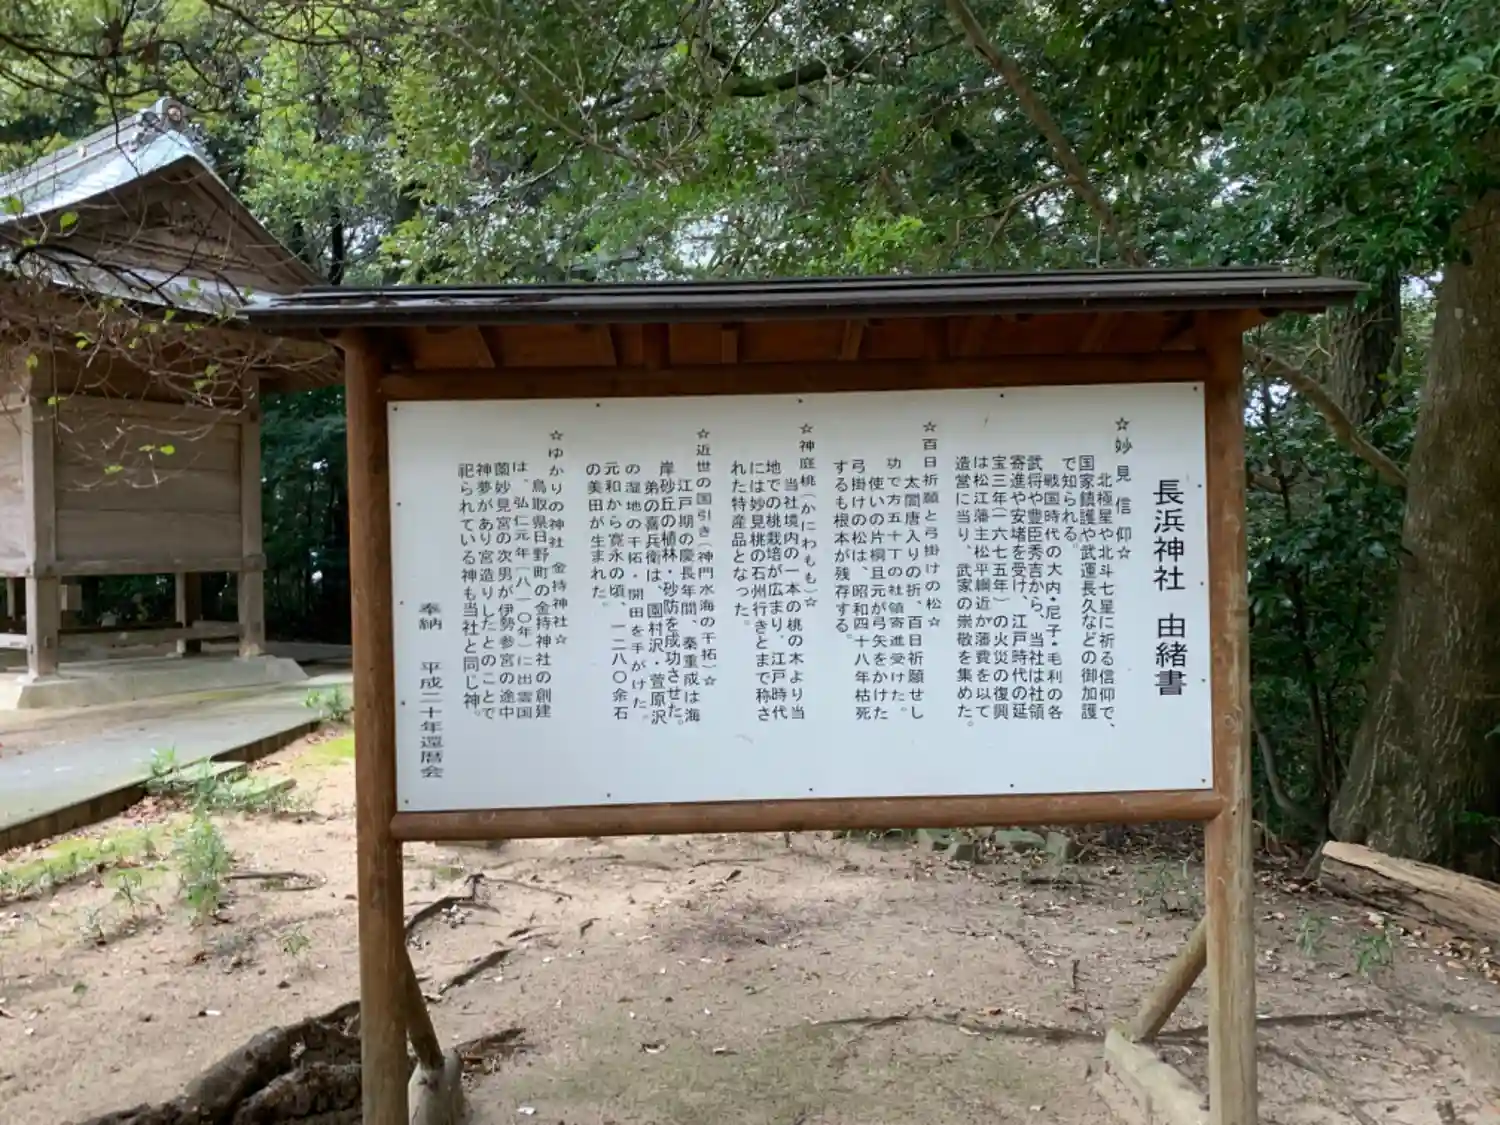 長浜神社　由緒書
☆妙見信仰☆
北極星や北斗七星に祈る信仰で、
国家鎮護や武運長久などの御加護
で知られる。
戦国時代の大内・尼子・毛利の各
武将や豊臣秀吉から、当社は社領
寄進や安堵を受け、江戸時代の延
宝三年(一六七五年)の火災の復興
は松江藩主松平綱近が藩費を以て
造営に当り、武家の崇敬を集めた。
☆百日祈願と弓掛けの松☆
太閤唐入りの折、百日祈願せし
功で方五十丁の社領寄進受けた。
使いの片桐且元が弓矢をかけた
弓掛けの松は、昭和四十八年枯死
するも根本が残存する。
☆神庭桃(かにわもも)☆
当社境内の一本の桃の木より当
地での桃栽培が広まり、江戸時代
には妙見桃の石州行きとまで称さ
れた特産品となった。
☆近世の国引き(神門水海の干拓)☆
江戸期の慶長年間、秦重成は海
岸砂丘の植林・砂防を成功させた。
弟の喜兵衛は、園村沢・萱原沢
の湿地の干拓・開田を手がけた。
元和から寛永の頃、一二八〇余石
の美田が生まれた。
☆ゆかりの神社 金持神社☆
鳥取県日野町の金持神社の創建
は、弘仁元年(八一〇年)に出雲国
薗妙見宮の次男が伊勢参宮の途中
神夢があり宮造りしたとのことで
祀られている神も当社と同じ神。
奉納　平成二十年還暦会